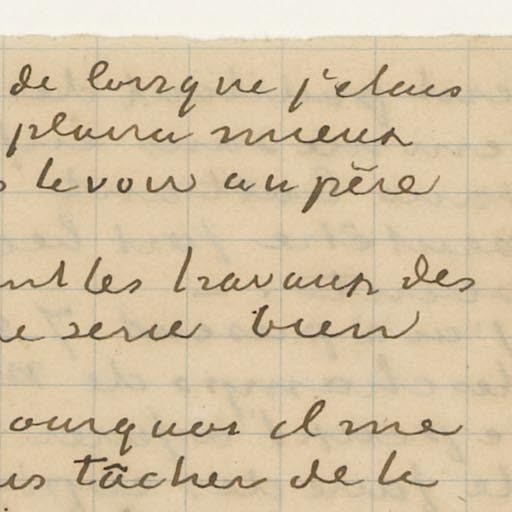 de lorsque j'etais
plaira mieux
le voir au père
les travaux des
serie bien
ourquoi il me
tâcher de le